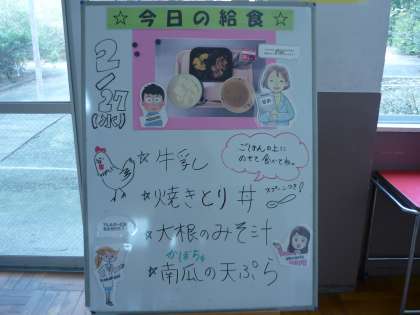 ☆今日の給食☆
2/27(水)
☆牛乳
ごはんの上に
のせて食べてね。
☆焼きとり丼
スプーンつき!
☆大根のみそ汁
かぼちゃ
☆南瓜の天ぷら